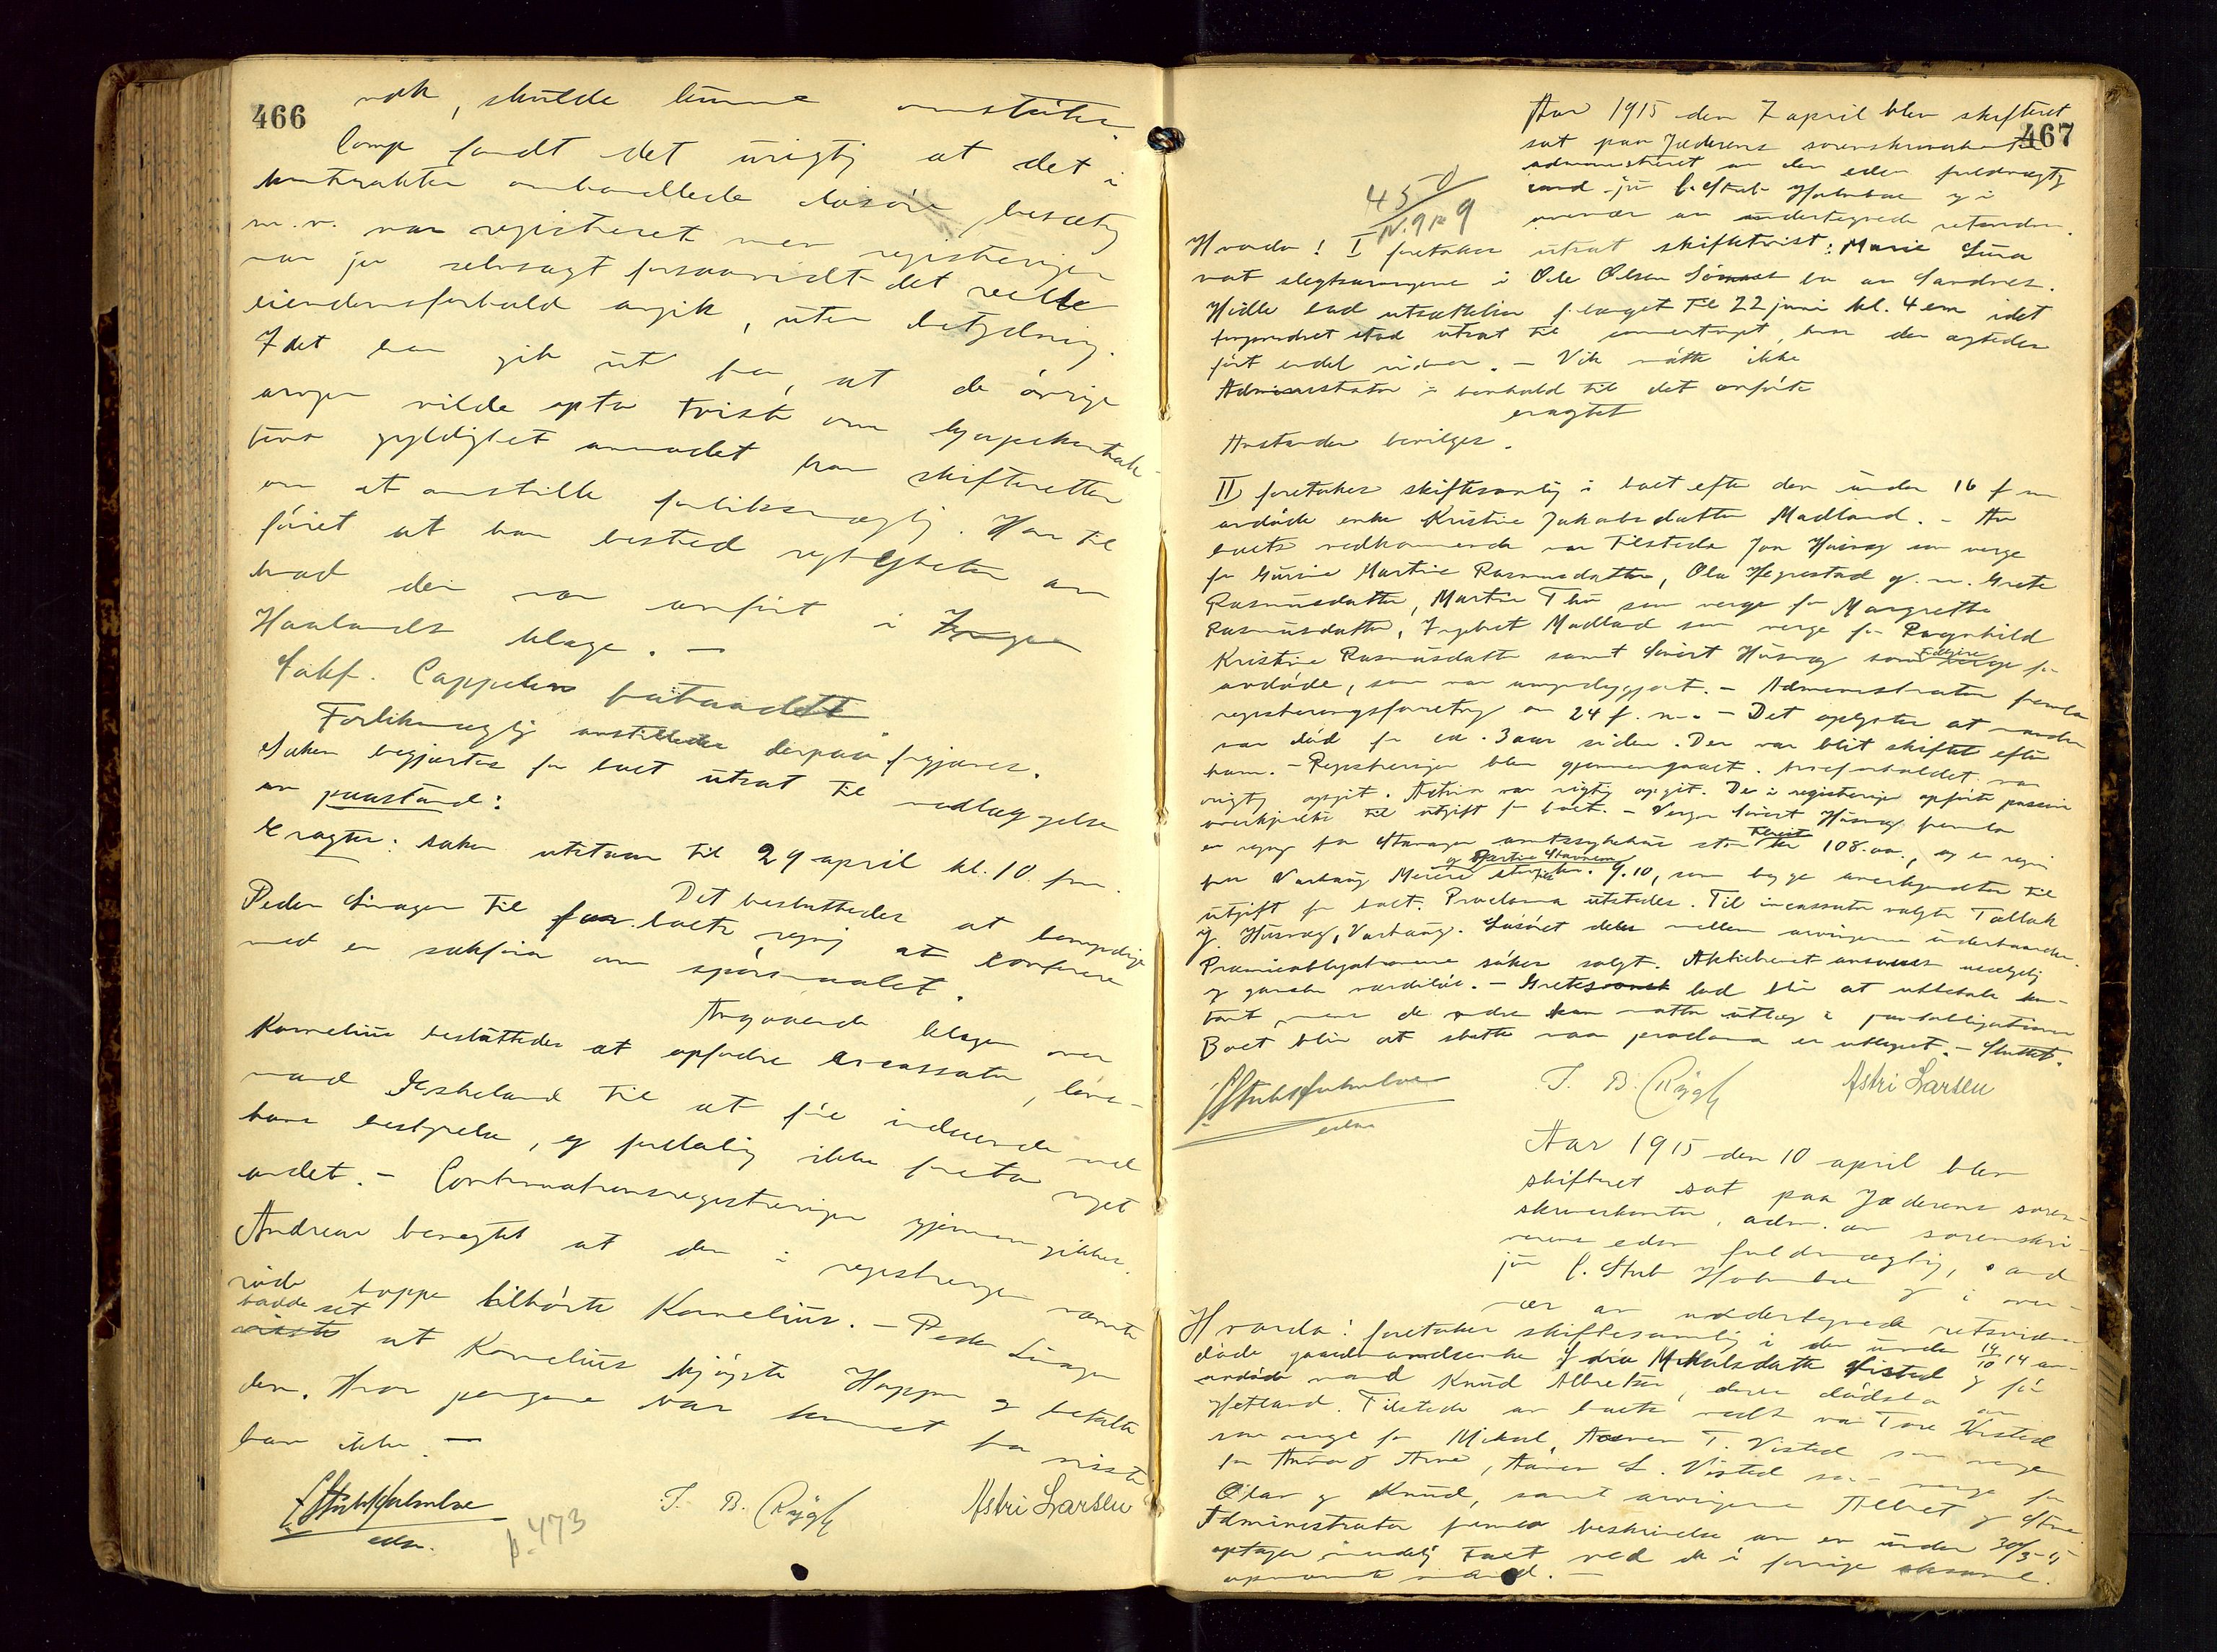 466
nok, skulde kunne omstøtes.
Comp fandt det urigtig at det i
kontrakten omhandlede løsøre, besætn
m.v. var registreret men registeringen
var jo selvsagt forsaavidt det reelle
eiendomsforhold angik, uten betydning.
Idet han gik ut fra, at de øvrige
arvinger vilde opta tvist om kjøpekontrak-
tens gyldighet anmodet han skifteretten
om at anstille forliksmægling. Han til
føiet at han bestred rigtigheten av
hvad der var anført i
Haalands klage. —
Sakf. Cappelen
Forliksmægling anstilledes derpaa forgjæves.
Saken begjærtes for boet utsat til nedlæggelse
av paastand:
Eragtes: saken utstaar til 29 april kl. 10 fm.
Det besluttedes at bemyndige
Peder til for boets regning at conferere
med en sakfører om spørsmaalet.
Angaaende klagen over
Kornelius besluttedes at opfordre incassator, lens-
mand Eskeland til at føre indseende med
hans bestyrelse, og forøvrig ikke foreta noget
andet. — Continuationsregistreringen gjennemgikkes.
Andreas benegtet at den i registreringen nævnte
røde hoppe tilhørte Kornelius. — Peder
hadde set
visste at Kornelius kjøpte Hoppen og betalte
den. Hvor pengene var kommet fra visste
han ikke. —
C Stub Holmboe
edsv.
p. 473
T. B. Rygh
Astri Larsen
467
Aar 1915 den 7 april blev skifteret
sat paa Jæderens sorenskriverkontor
administreret av den edsv fuldmægtig
cand. jur C. Stub Holmboe og i
overvær av undertegnede retsvidner.
450
1919
Hvorda! I foretakes utsat skiftetvist: Marie
mot slegtsarvingene i Ole Olsen bo av Sandnes.
Hille bad utsættelse forlænget til 22 juni kl. 4 em idet
tingsvidnet stod utsat til
ført endel vidner. — Vik møtte ikke
Administrator i henhold til det anførte
eragtet
Anstanden bevilges.
II foretakes skiftesamling i boet efter den under 16 f m
avdøde enke Kristine Jakobsdatter Madland. — Av
boets vedkommende var tilstede Jon som verge
for Martine Rasmusdatter, Ole Hegrestad g. m. Grete
Rasmusdatter, Martin Thu som verge for Margrethe
Rasmusdatter, Ingebret Madland som verge for Ragnhild
Kristine Rasmusdatter samt Sivert Husvæg som verge for
avdøde, som var umyndiggjort. — Administrator fremla
registreringsforretning av 24 f. m. — Det oplystes at manden
var død for ca. 3 aar siden. Der var blit skiftet efter
ham. — Registreringen blev gjennemgaaet. Arveforholdet var
rigtig opgit. Activa var rigtig opgit. De i registreringen opførte passiva
anerkjendtes til utgift for boet. — Vergen Sivert Husvæg fremla
en regning fra Stavanger amtssykehus stor kr 108.00, og en regning
fra Varhaug Meieri stor kr. 9.10, som begge anerkjendtes til
utgift for boet. Proclama utstedes. Til incassator valgtes Tollak
G. Husvæg, Varhaug. Løsøret deles mellem arvingerne underhaanden.
Præmieobligationene søkes solgt. Aktiebrevet ansaaes uselgelig
og ganske værdiløs. — Gretes lod blir at utbetale kon-
tant, mens de andre kan motta utlæg i pantobligationer
Boet blir at slutte naar proclama er utløpet. — Sluttet.
C Stub Holmboe
edsv
T. B. Rygh
Astri Larsen
Aar 1915 den 10 april blev
skifteret sat paa Jæderens soren-
skriverkontor, adm. av sorenskri-
verens edsv fuldmægtig, cand
jur C. Stub Holmboe og i over-
vær av undertegnede retsvidner
Hvorda! foretakes skiftesamling i den under 14/10 14 av-
døde gaardmandsenke Mikalsdatter Visted og før
avdøde mand Knud Albretsen, deres dødsbo av
Hetland. Tilstede av boets vedk var Tore Visted
som verge for Mikal, T. Visted som verge
for Anna og Arne, L. Visted som verge for
Oskar og Knud, samt arvingerne Albret og
Administrator fremla beskrivelse av en under 30/3-15
optagen mindelig taxt ved de i forrige skssaml.
opnævnte mænd. —